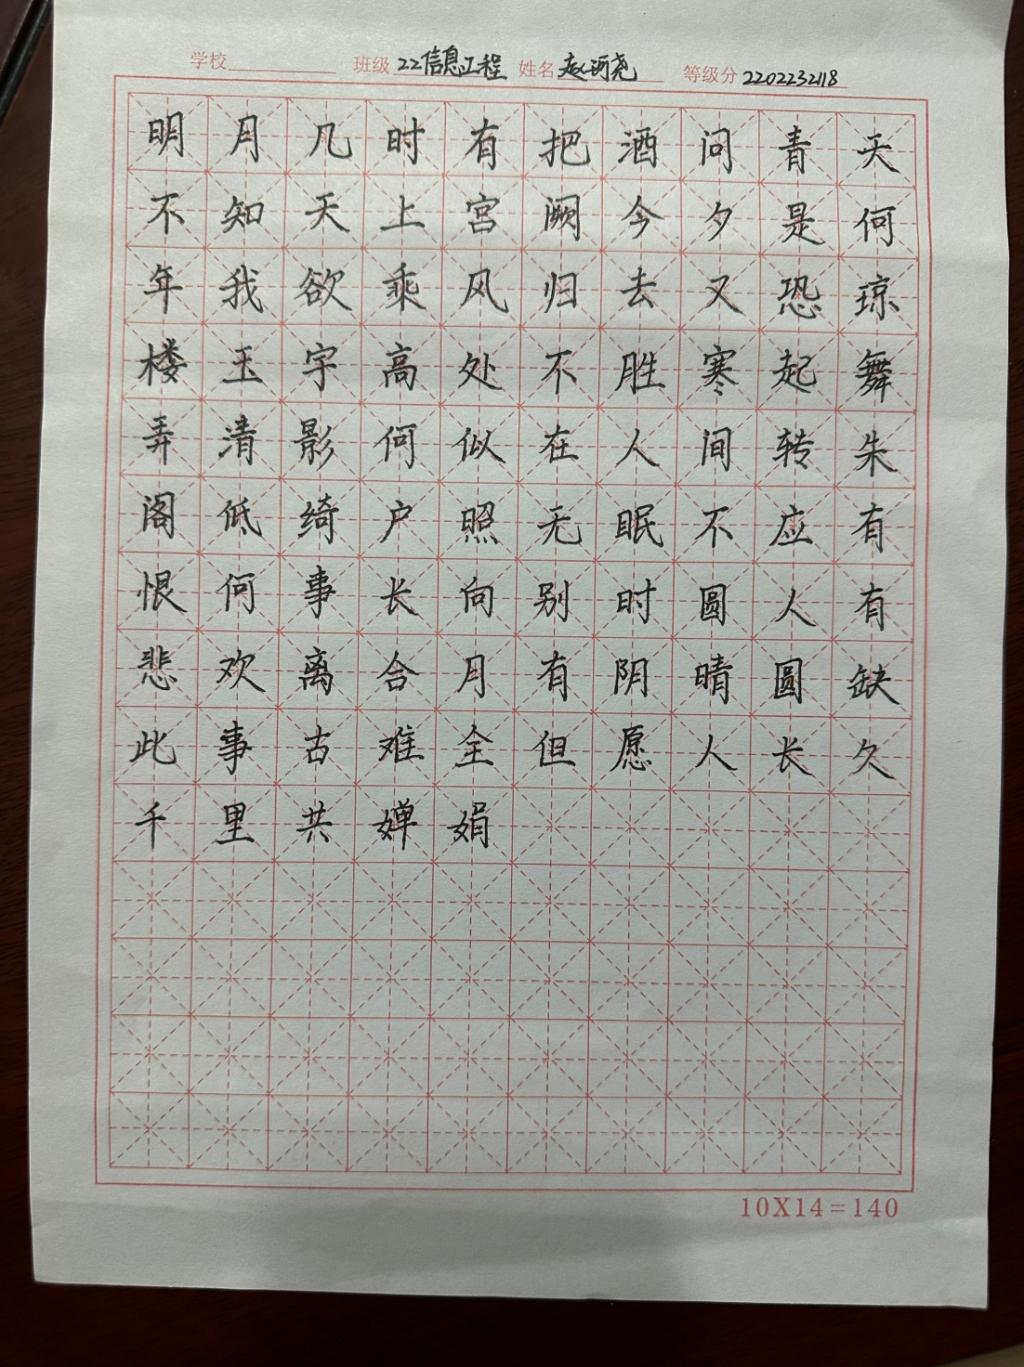 学校 班级 22信息工程 姓名 赵珂尧 等级分 2202232118
明月几时有把酒问青天
不知天上宫阙今夕是何
年我欲乘风归去又恐琼
楼玉宇高处不胜寒起舞
弄清影何似在人间转朱
阁低绮户照无眠不应有
恨何事长向别时圆人有
悲欢离合月有阴晴圆缺
此事古难全但愿人长久
千里共婵娟
10X14=140